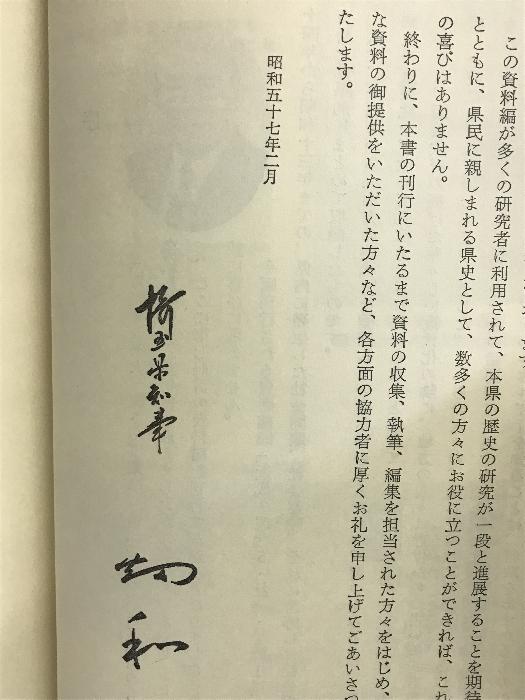 この資料編が多くの研究者に利用されて、本県の歴史の研究が一段と進展することを期待
とともに、県民に親しまれる県史として、数多くの方々にお役に立つことができれば、これ
の喜びはありません。
終わりに、本書の刊行にいたるまで資料の収集、執筆、編集を担当された方々をはじめ、
な資料の御提供をいただいた方々など、各方面の協力者に厚くお礼を申し上げてごあいさつ
たします。
昭和五十七年二月
埼玉県知事
畑和